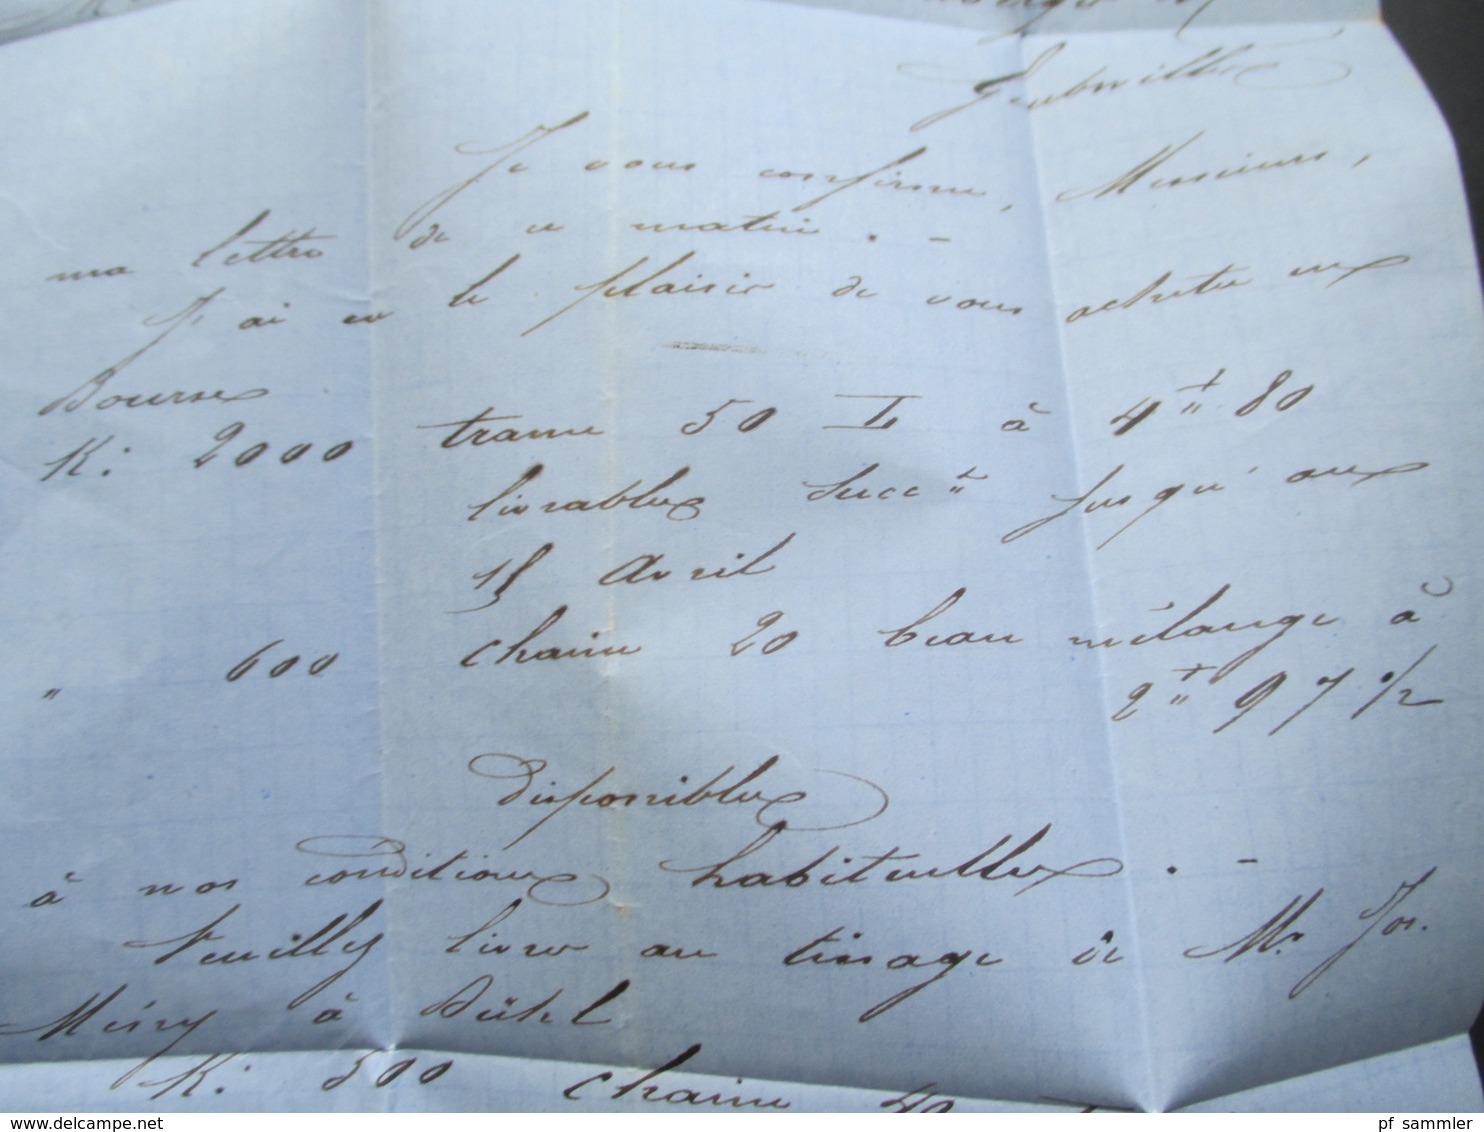 Guebwiller
Je vous confirme, Messieurs,
ma lettre de ce matin. -
J'ai eu le plaisir de vous acheter en
Bourse
K: 2000 trame 50 I à 4 80
livrables succ jusqu'au
15 Avril
" 600 chaine 20 beau mélange à
2 97 1/2
disponibles
à nos conditions habituelles. -
Veuillez livrer au tissage de Mr. Jos.
Mény à Bühl
K: 500 chaine 40
www.delcampe.net
pf_sammler